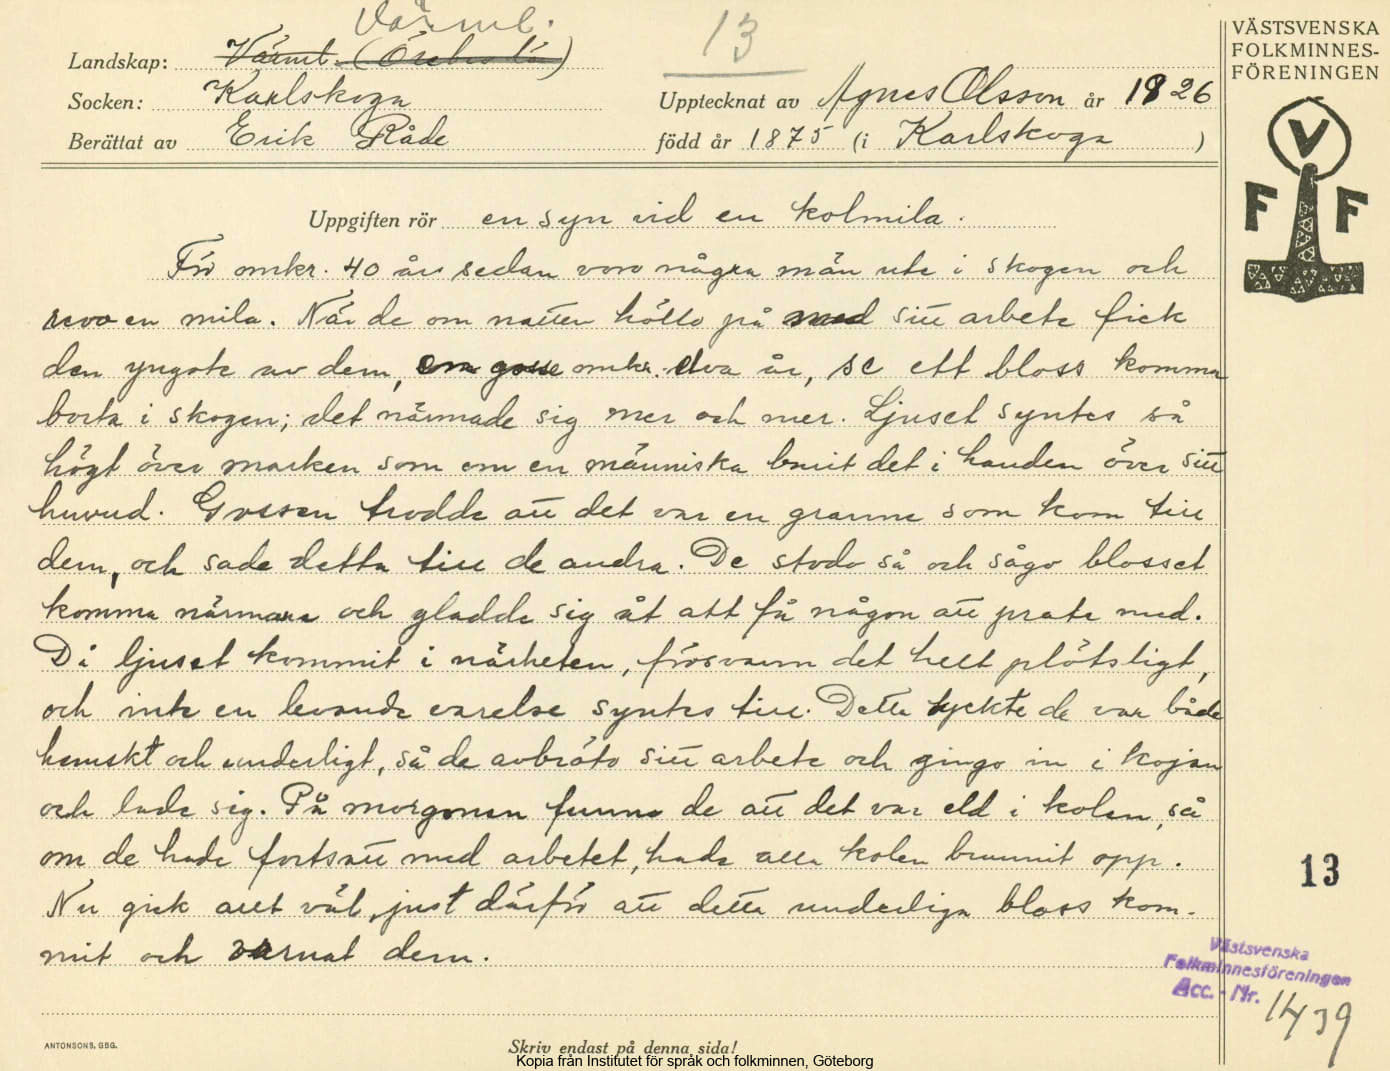 Värml.
13
VÄSTSVENSKA
FOLKMINNES-
FÖRENINGEN
Landskap: Värml. (Örebro län)
Socken: Karlskoga
Upptecknat av Agnes Olsson år 1926
Berättat av Erik Råde
född år 1875 (i Karlskoga)
V
F F
Uppgiften rör en syn vid en kolmila.
För omkr. 40 år sedan voro några män ute i skogen och
revo en mila. När de om natten höllo på med sitt arbete fick
den yngste av dem, en gosse omkr. elva år, se ett bloss komma
borta i skogen; det närmade sig mer och mer. Ljuset syntes så
högt över marken som om en människa burit det i handen över sitt
huvud. Gossen trodde att det var en granne som kom till
dem, och sade detta till de andra. De stodo så och sågo blosset
komma närmare och gladde sig åt att få någon att prata med.
Då ljuset kommit i närheten, försvann det helt plötsligt,
och inte en levande varelse syntes till. Detta tyckte de var både
hemskt och underligt, så de avbröto sitt arbete och gingo in i kojan
och lade sig. På morgonen funno de att det var eld i kolen, så
om de hade fortsatt med arbetet, hade alla kolen brunnit opp.
Nu gick allt väl, just därför att detta underliga bloss kom-
mit och varnat dem.
13
Västsvenska
Folkminnesföreningen
Acc. - Nr. 1439
ANTONSONS, GBG.
Skriv endast på denna sida!
Kopia från Institutet för språk och folkminnen, Göteborg